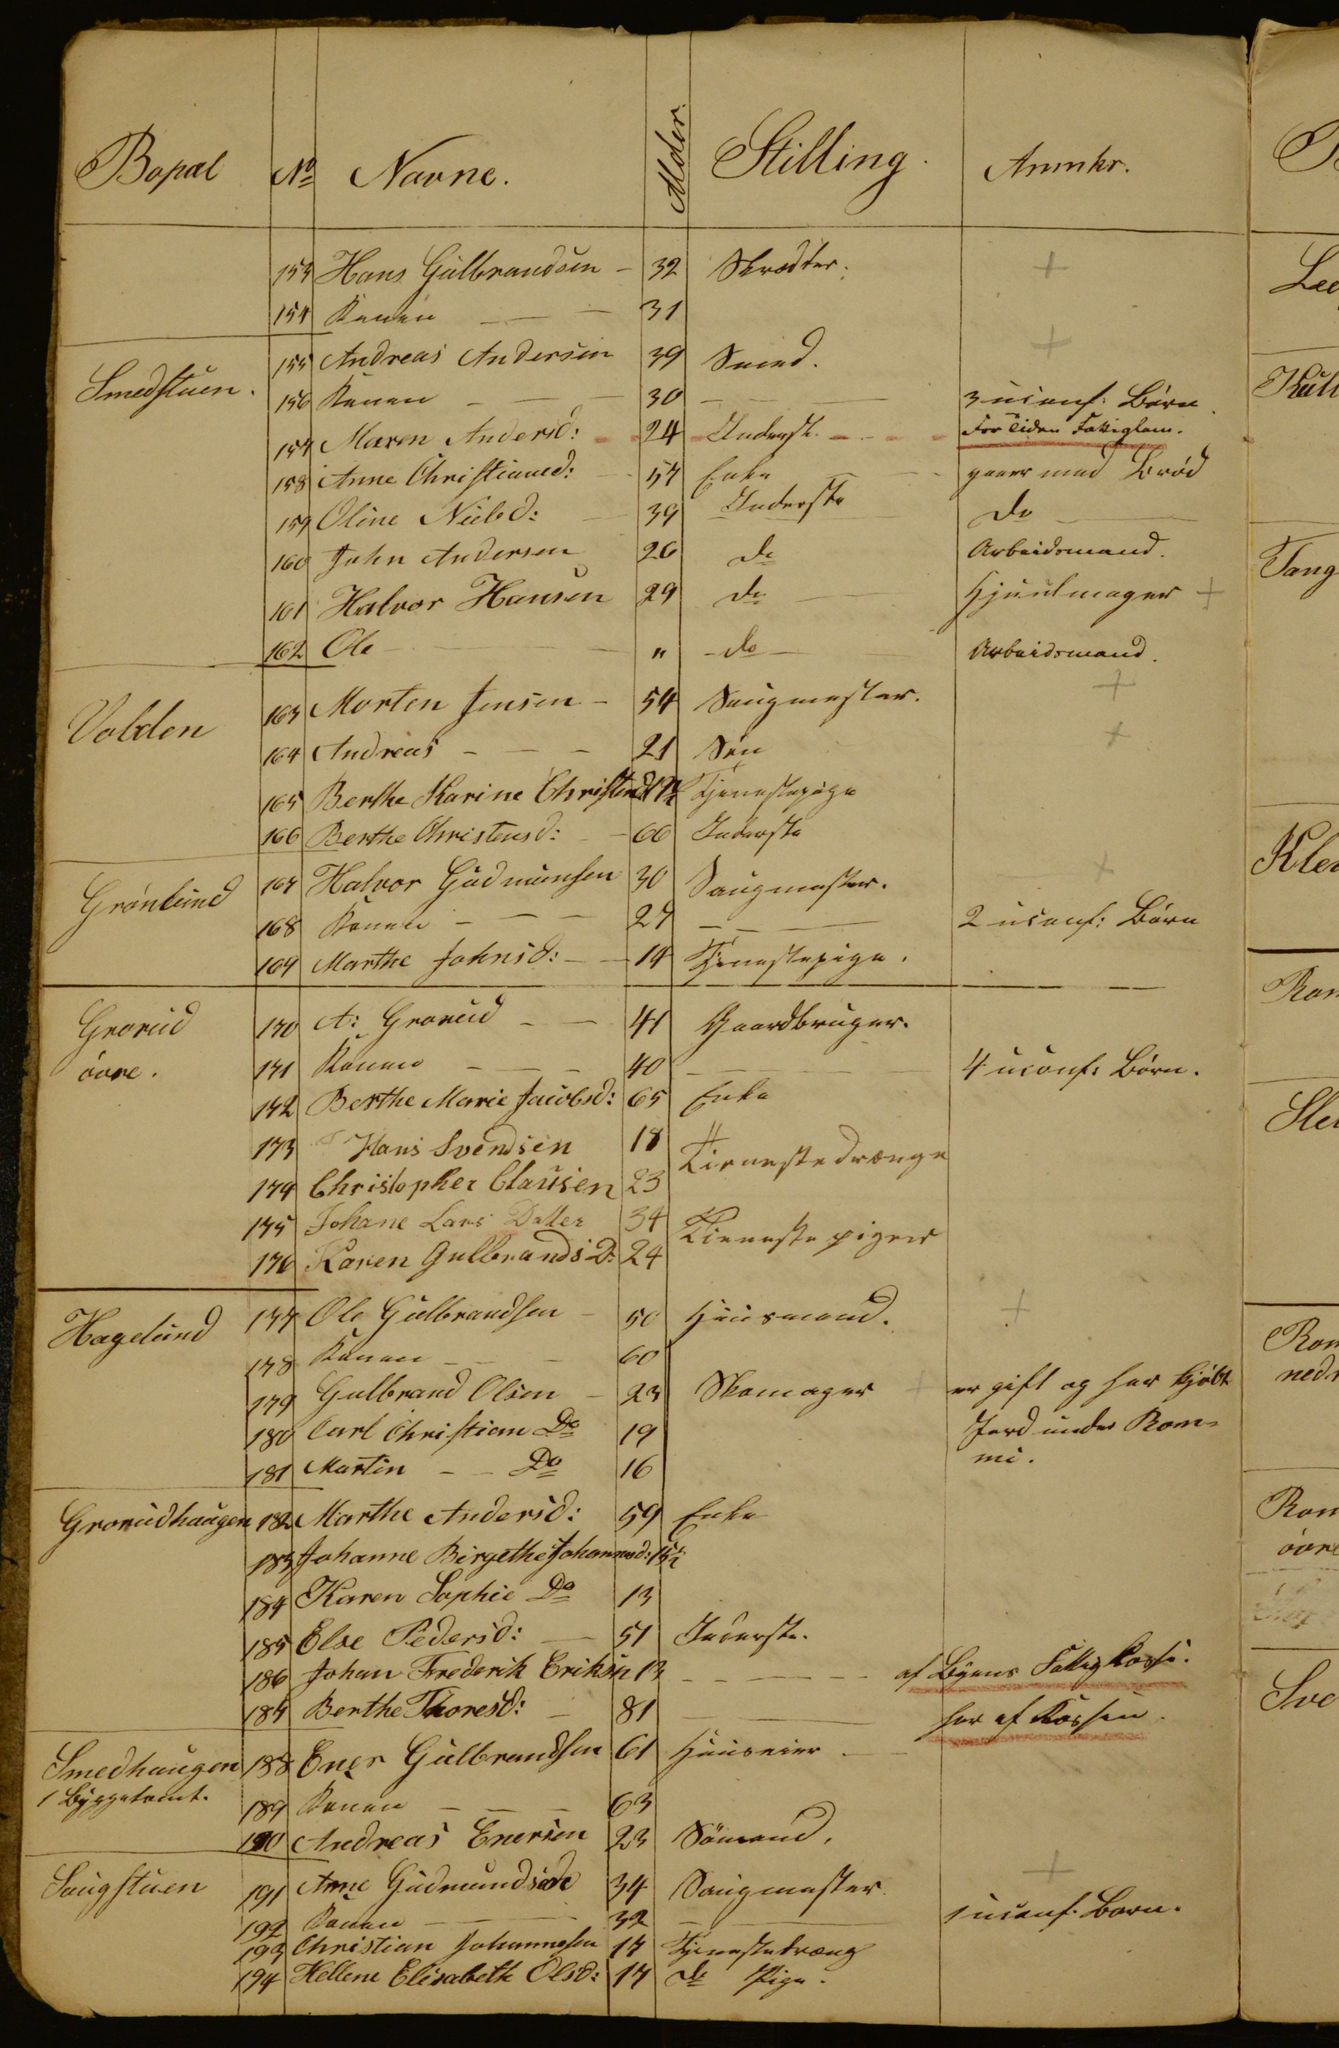 Bopæl No Navne. Alder. Stilling. Anmkr.
153 Hans Gulbrandsen - 32 Skrædder. +
154 Konen - - 31
Smedstuen. 155 Andreas Andersen 39 Smed. +
156 Konen - - 30 - - 3 uconf: Børn
157 Maren Andersd: - 24 Inderst. - - For Tiden Fattiglem.
158 Anne Christiansd: - 57 Enke - gaaer med Brød
159 Oline Nielsd: - 39 Inderste Do
160 John Andersen 26 do Arbeidsmand.
161 Halvor Hansen 29 do Hjuulmager +
162 Ole - " - do - Arbeidsmand.
Volden 163 Morten Jensen - 54 Saugmester. +
164 Andreas - - - 21 Søn +
165 Berthe Karine Christensd: Tjenestepige
166 Berthe Christensd: - 66 Inderste
Grønlund 167 Halvor Gudmunsen 30 Saugmester. +
168 Konen - - - 27 - - 2 uconf: Børn
169 Marthe Johnsd: - - 14 Tjenestepige.
Grorud øvre. 170 A: Grorud - - 41 Gaardbruger.
171 Konen - - - 40 - - 4 uconf: Børn.
172 Berthe Marie Jacobsd: 65 Enke
173 Hans Svendsen 18 Tienestedrænge
174 Christopher Clausen 23
175 Johane Lars Datter 34 Tienestepiger
176 Karen Gulbrands D: 24
Hagelund 177 Ole Gulbrandsen - 50 Huusmand. +
178 Konen - - - 60
179 Gulbrand Olsen - 23 Skomager + er gift og har kjøbt
180 Carl Christian Do 19 Jord under Rom-
181 Martin - - Do 16 mi.
Grorudhaugen 182 Marthe Andersd: 59 Enke
183 Johanne Birgethe Johannesd: 15½
184 Karen Sophie Do 13
185 Else Pedersd: - 51 Inderste.
186 Johan Frederik Eriksen 13 - - - af Byens Fattigkasse.
187 Berthe Thoresd: - 81 - har af Kassen.
Smedhaugen 188 Ener Gulbrandsen 61 Huuseier - -
1 Byggetomt. 189 Konen - - - 63
190 Andreas Enersen 23 Sømand.
Saugstuen 191 Arne Gudmundsen 34 Saugmester +
192 Konen - - 32 - 1 uconf. Barn.
193 Christian Johannesen 17 Tjenestedreng
194 Hellene Elisabeth Olsd: 17 do Pige.